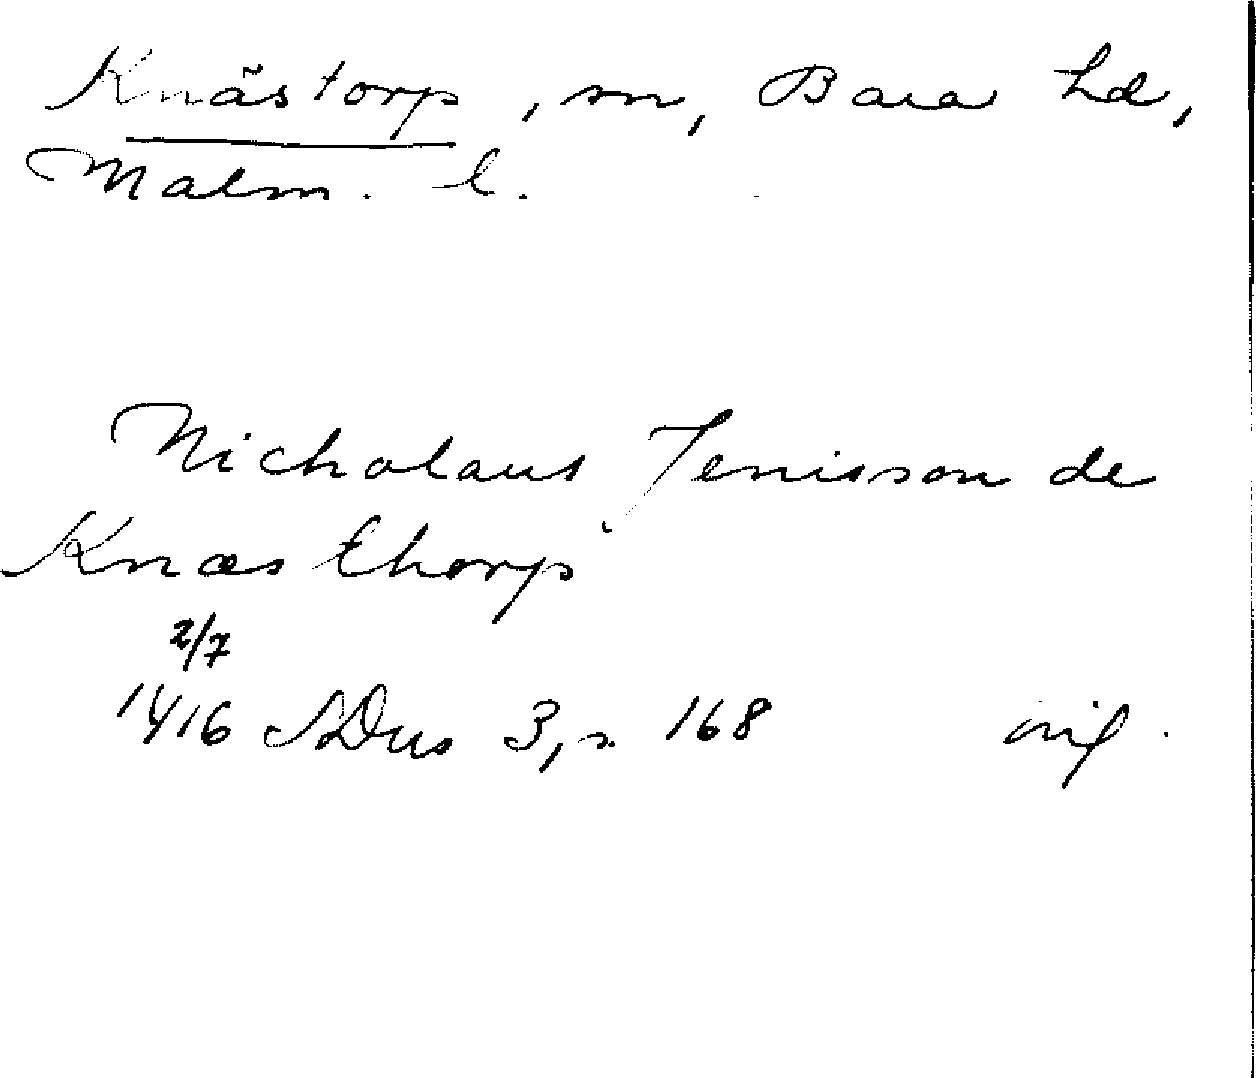 Knästorp, sn, Bara hd,
Malm. l.
Nicholaus Jenisson de
Knæsthorp
2/7
1416 SDns 3, s. 168 orig.